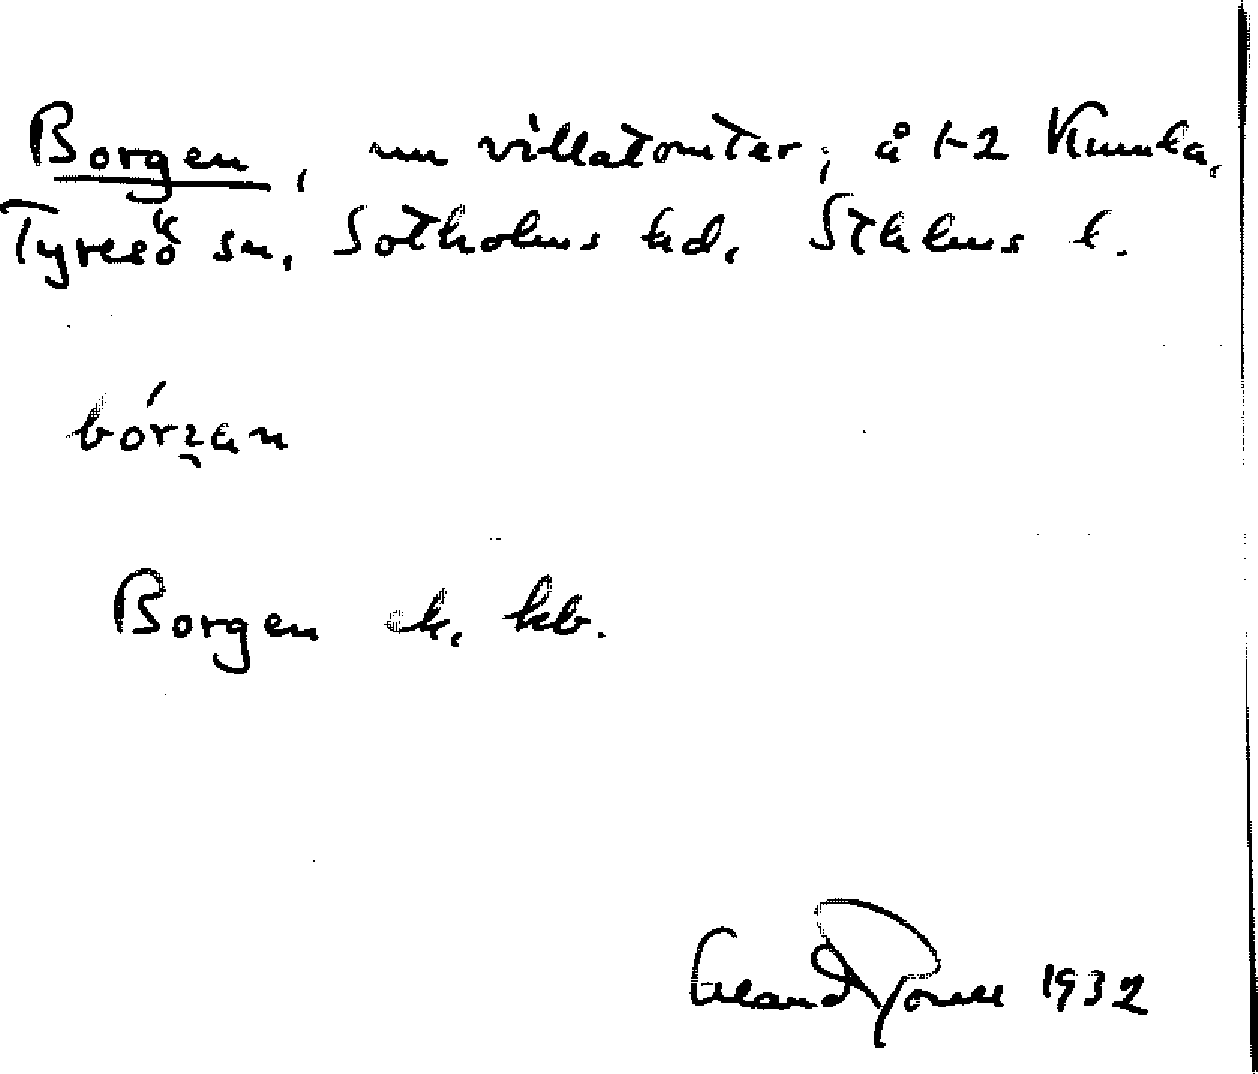 Borgen, nu villatomter, å 1-2 Kumla,
Tyresö sn, Sotholms hd, Sthlms l.
bórʒan
Borgen ek. kb.
1932